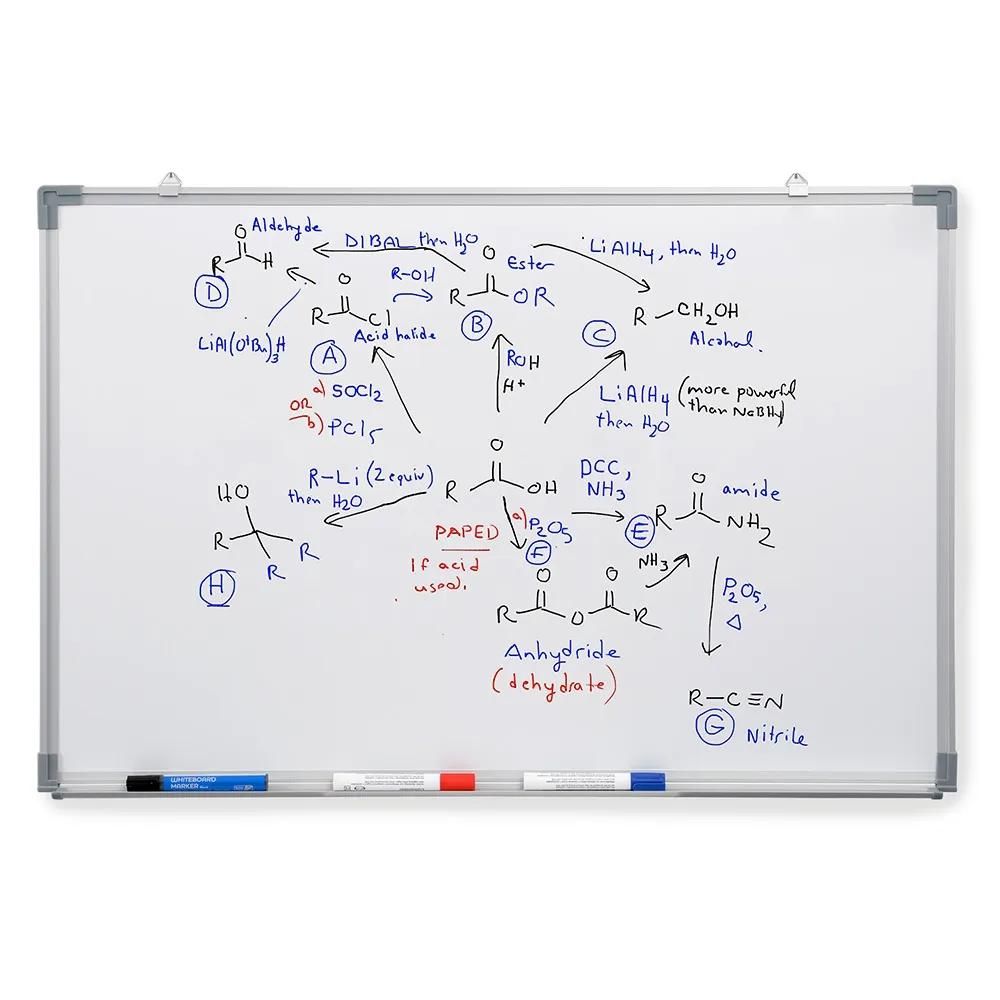 O Aldehyde
R H
D
DIBAL then H2O
LiAlH4, then H2O
O
Ester
R OR
B
R-OH
O
R Cl
Acid halide
A
LiAl(OtBu)3H
R-CH2OH
Alcohol.
C
a) SOCl2
OR
b) PCl5
ROH
H+
LiAlH4 (more powerful
than NaBH4)
then H2O
O
R OH
R-Li (2 equiv)
then H2O
HO
R R
R
H
DCC,
NH3
O
amide
R NH2
E
PAPED
If acid
used.
a) P2O5
F
NH3
O O
R O R
Anhydride
(dehydrate)
P2O5,
Δ
R-C≡N
G Nitrile
WHITEBOARD
MARKER